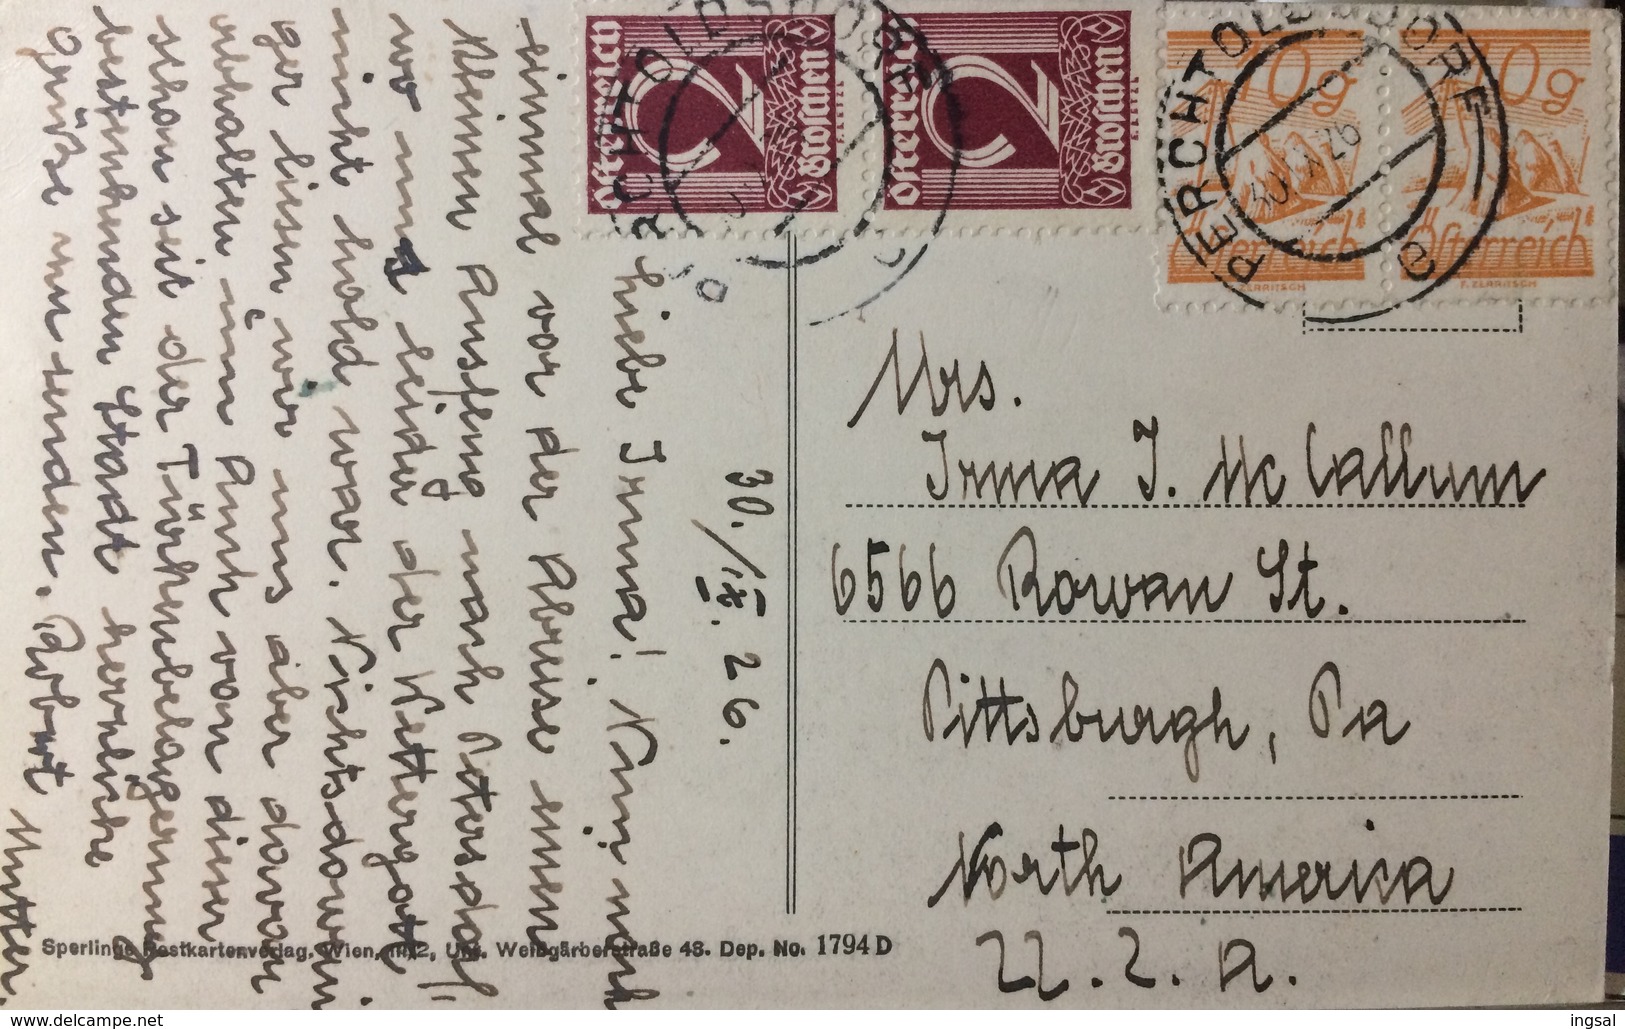 Österreich
2
Groschen
Österreich
2
Groschen
10g
Österreich
F. ZERRITSCH
10g
Österreich
F. ZERRITSCH
PERCHTOLDSDORF
PERCHTOLDSDORF
30.IX.26
30./IX. 26.
Liebe Irma! Nun noch
einmal vor der Abreise einen
kleinen Ausflug nach Petersdorf
wo uns leider der Wettergott
nicht hold war. Nichtsdestoweni
ger liesen wir uns aber davon
abhalten um Auch von dieser
schon seit der Türkenbelagerung
bestehenden Stadt herzliche
Grüße zu senden. Robert
Mutter.
Mrs.
Irma J. McCallum
6566 Rowan St.
Pittsburgh, Pa
North America
22. 2. A.
Sperlings Postkartenverlag, Wien, III/2, Unt. Weißgärberstraße 48. Dep. No. 1794 D
www.delcampe.net
ingsal